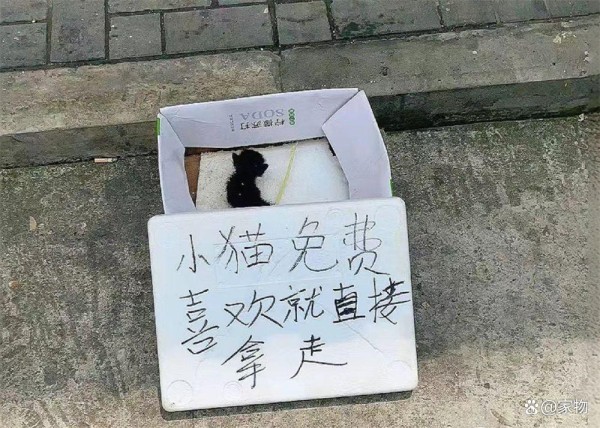 柠檬苏打
SODA
小猫免费
喜欢就直接
拿走
@家物